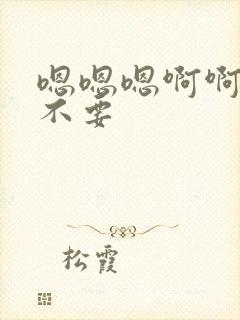 嗯嗯嗯啊啊
不要
松霞